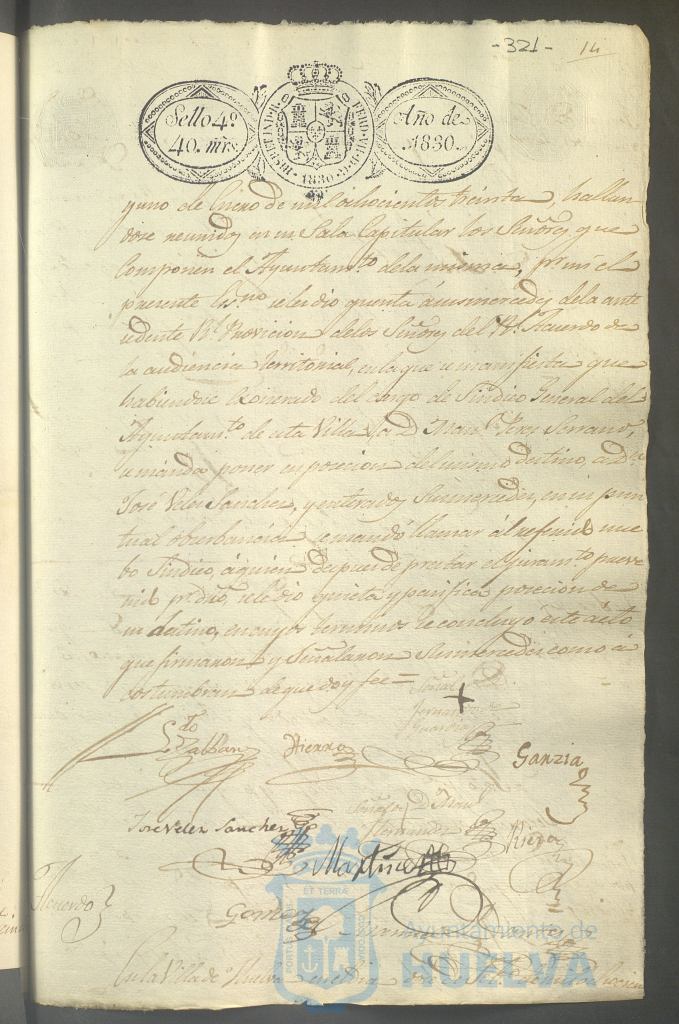 -321- 14
Sello 4º
40. mrs.
HISP. ET IND. R. FERD. VII. D. G. 1830.
Año de
1830.
yuno de Enero de mil ochocientos treinta, hallan
dose reunidos en su Sala Capitular los Señores que
componen el Ayuntamto. dela misma, pr. mi el
presente Esno. se les dio quenta á susmercedes dela ante
cedente Rl. Provicion delos Señores del Rl. Acuerdo de
la audiencia territorial, enla que se manifiesta que
habiendose Exonerado del cargo de Sindico General del
Ayuntamto. de esta Villa, a D. Manl. Serrano,
se manda poner en posecion del mismo destino, a Dn.
José Velez Sanchez, y enterados Susmercedes, en su pun
tual obserbancia se mandó llamar ál referido nue
bo Sindico, áquien despues de prestar el juramto. preve
nido pr. dro. se le dio quieta y pacifica posecion de
su destino, en cuyos terminos se concluyo este ácto
que firmaron y Señalaron Susmercedes como á
costumbran de que doy fee =
Señal
+
Hierro
Ganzia
José Velez Sanchez
Señal de D. Manl.
Hernandez
Riera
Martinez
Gomez
Acuerdo
ET TERRÆ
Ayuntamiento de
HUELVA
Enla Villa de